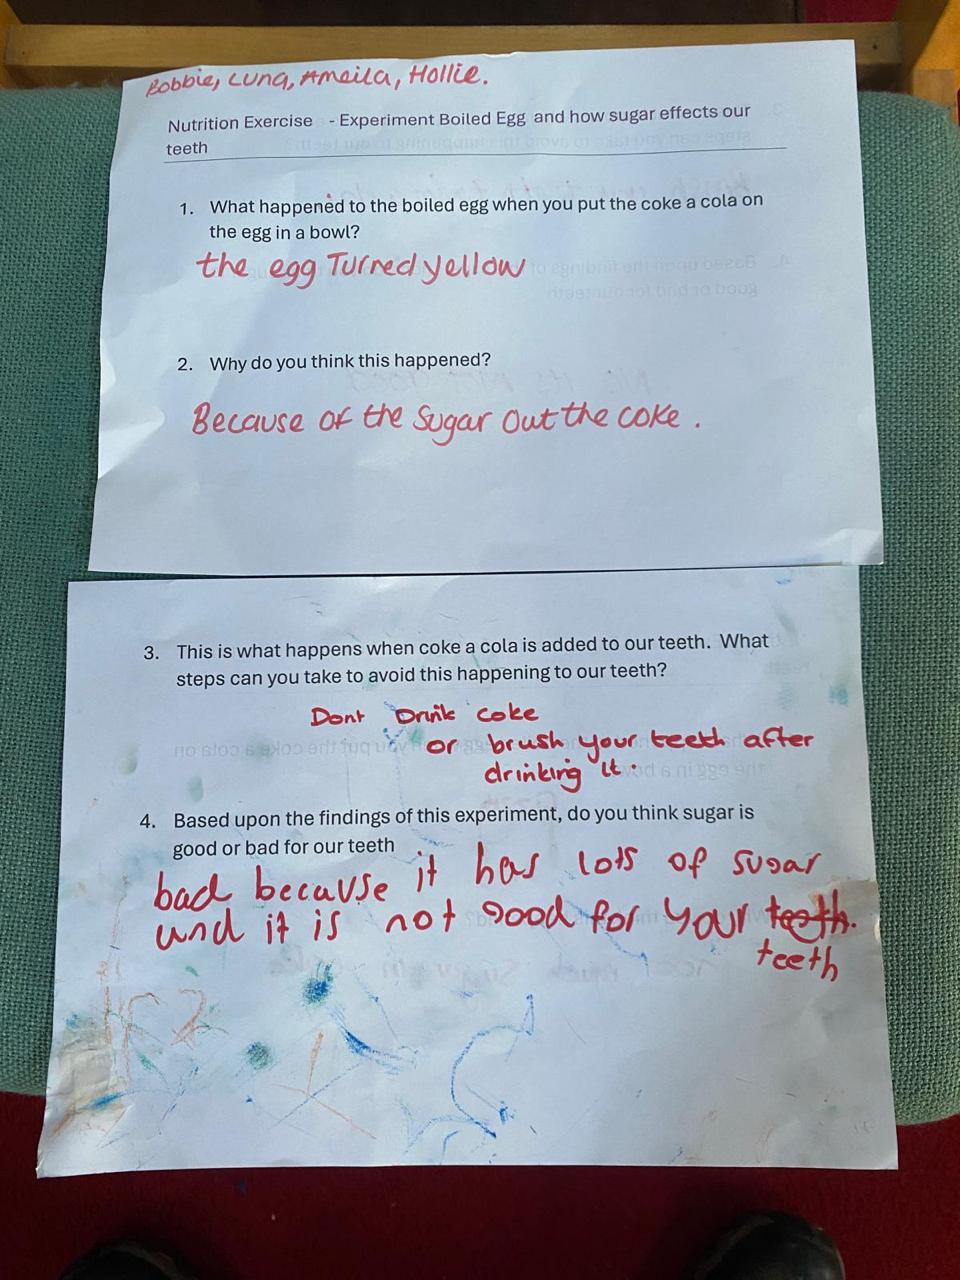 Bobbie, Luna, Ameila, Hollie.
Nutrition Exercise - Experiment Boiled Egg and how sugar effects our
teeth
1. What happened to the boiled egg when you put the coke a cola on
the egg in a bowl?
the egg Turned yellow
2. Why do you think this happened?
Because of the Sugar Out the coke.
3. This is what happens when coke a cola is added to our teeth. What
steps can you take to avoid this happening to our teeth?
Dont Drink coke
or brush your teeth after
drinking it.
4. Based upon the findings of this experiment, do you think sugar is
good or bad for our teeth
bad because it has lots of sugar
and it is not good for your teeth.
teeth